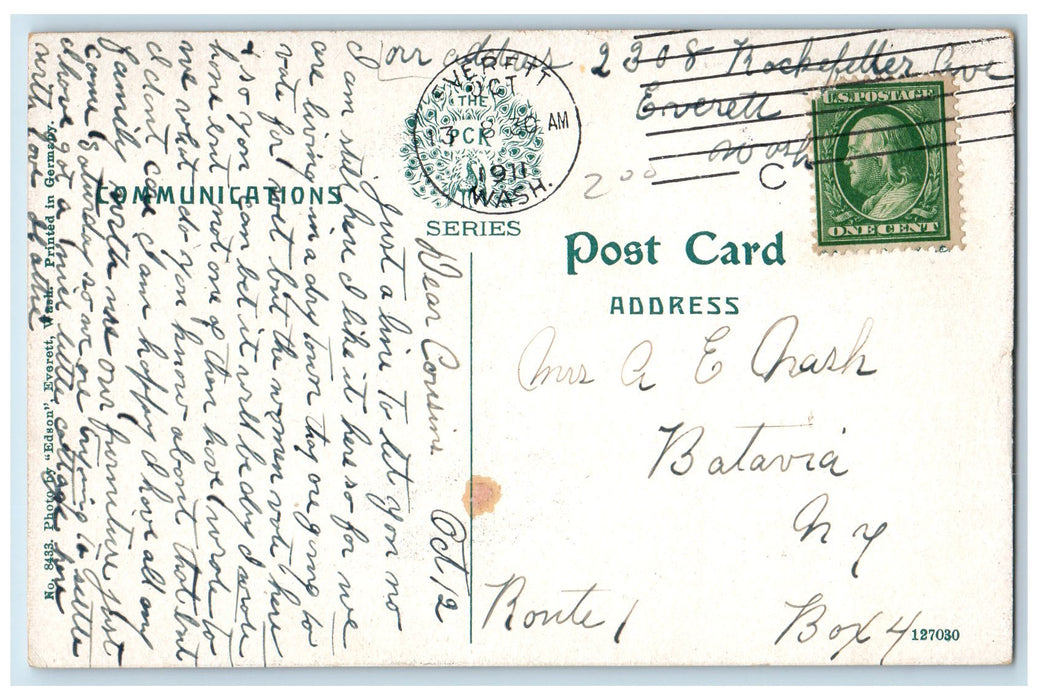 our address 2308 Rockefeller Ave
Everett
Wash
EVERETT
OCT
13
8 30 AM
1911
WASH.
THE
PCK
SERIES
C
200
U.S. POSTAGE
ONE CENT
COMMUNICATIONS
Post Card
ADDRESS
Mrs A E Nash
Batavia
N Y
Route 1
Box 4
127030
Dear Cousins Oct 12
Just a line to let you no
I am still here I like it here so far we
are living in a dry town they are going to
vote for wet but the women vote here
so you can bet it will be dry I wrote
home but not one of them have wrote to
me what do you know about that but
I dont care I am happy I have all my
family Bertha use our furniture just
came Saturday so we are trying to settle
have got a nice little cottage here
with love Hattie
No. 8433. Photo by "Edson", Everett, Wash. Printed in Germany.